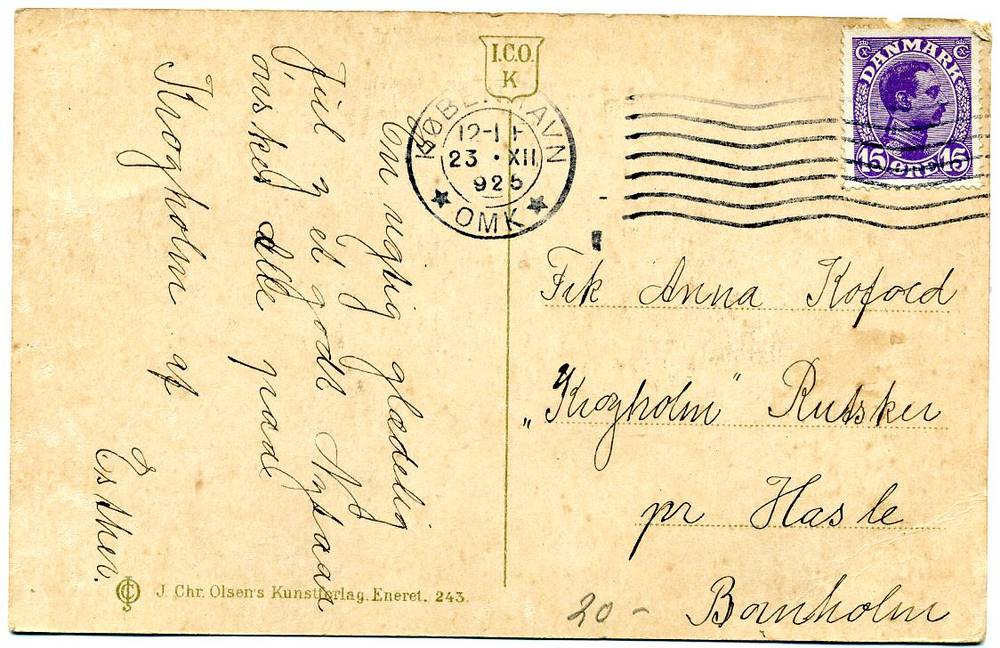 I.C.O.
K
KØBENHAVN
12-1 E
23 • XII
925
OMK
DANMARK
15 ØRE 15
En rigtig glædelig
Jul og et godt Nytaar
ønskes alle paa
Krogholm af
Esther.
Frk Anna Kofoed
„Krogholm" Rutsker
pr Hasle
Bornholm
20-
J. Chr. Olsen's Kunstforlag. Eneret. 243.